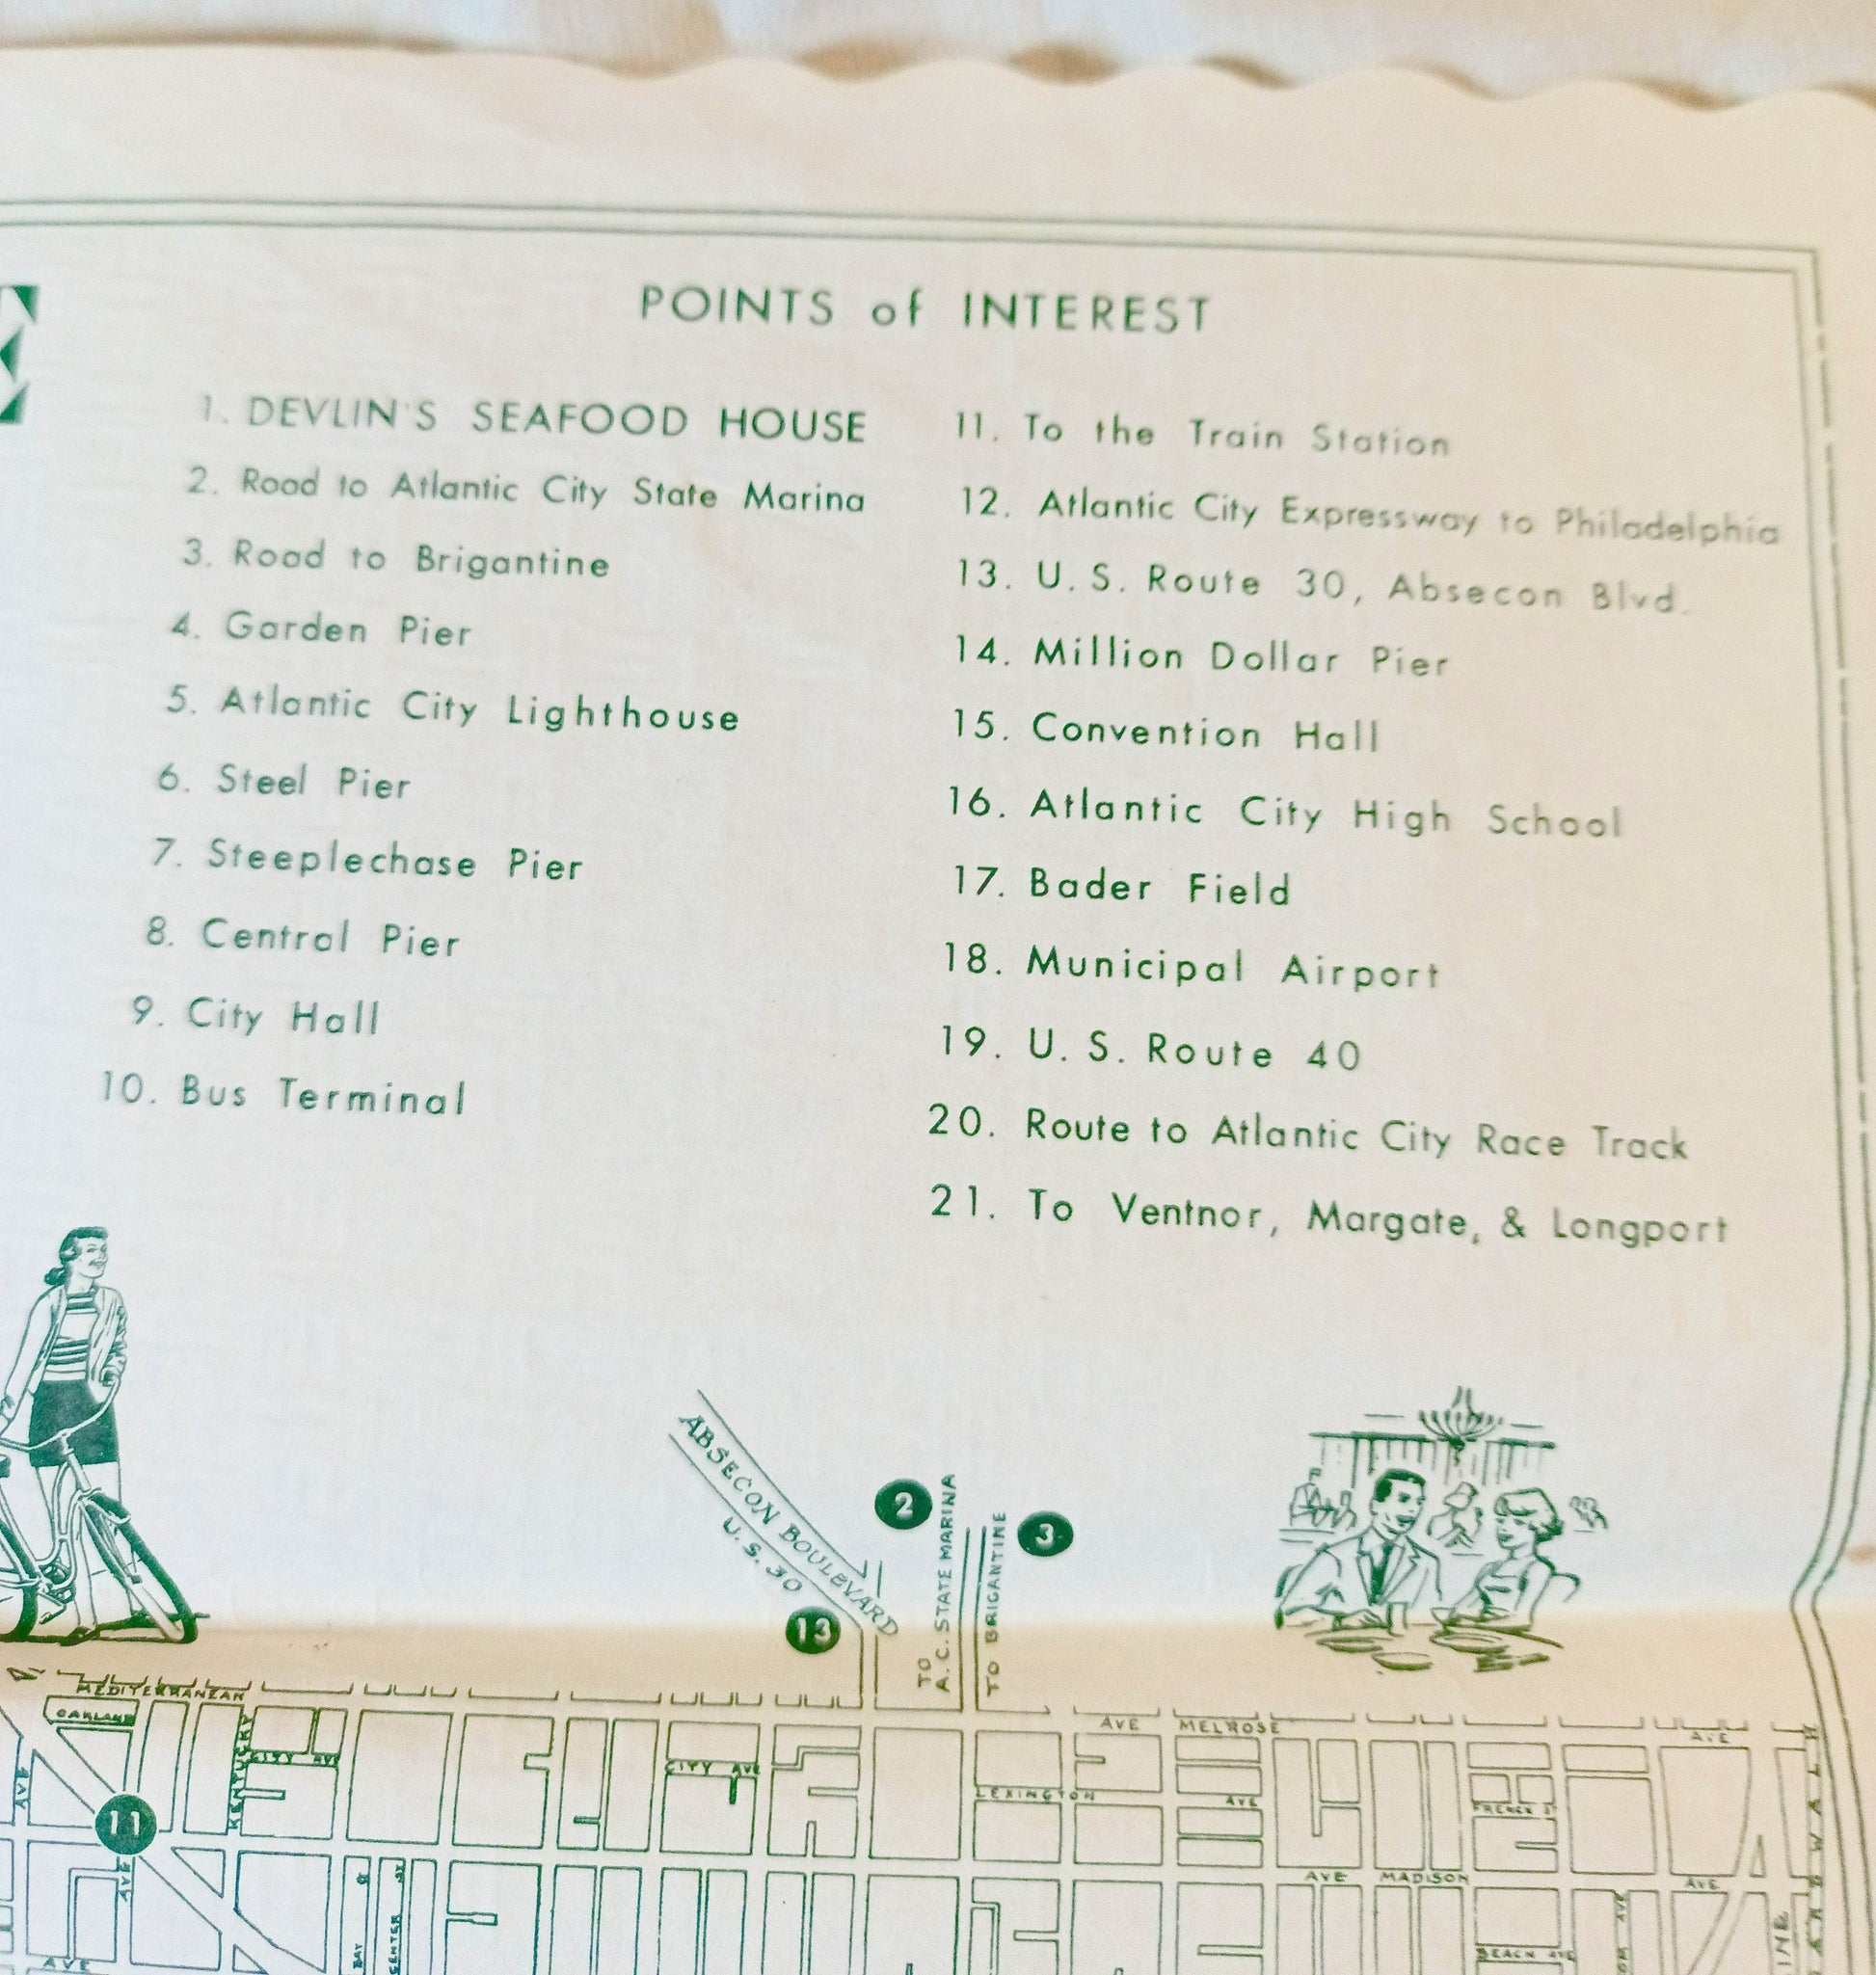 POINTS of INTEREST
1. DEVLIN'S SEAFOOD HOUSE
2. Road to Atlantic City State Marina
3. Road to Brigantine
4. Garden Pier
5. Atlantic City Lighthouse
6. Steel Pier
7. Steeplechase Pier
8. Central Pier
9. City Hall
10. Bus Terminal
11. To the Train Station
12. Atlantic City Expressway to Philadelphia
13. U. S. Route 30, Absecon Blvd.
14. Million Dollar Pier
15. Convention Hall
16. Atlantic City High School
17. Bader Field
18. Municipal Airport
19. U. S. Route 40
20. Route to Atlantic City Race Track
21. To Ventnor, Margate, & Longport
ABSECON BOULEVARD
U. S. 30
13
2
TO
A. C. STATE MARINA
TO BRIGANTINE
3
MEDITERRANEAN
AVE MELROSE AVE
OAKLAND
KENTUCKY
CITY AVE
CITY AVE
LEXINGTON AVE
FRENCH ST
AVE
11
AVE
AVE MADISON AVE
BOARDWALK
BAY
CENTER ST
BEACH AVE
AVE
AVE